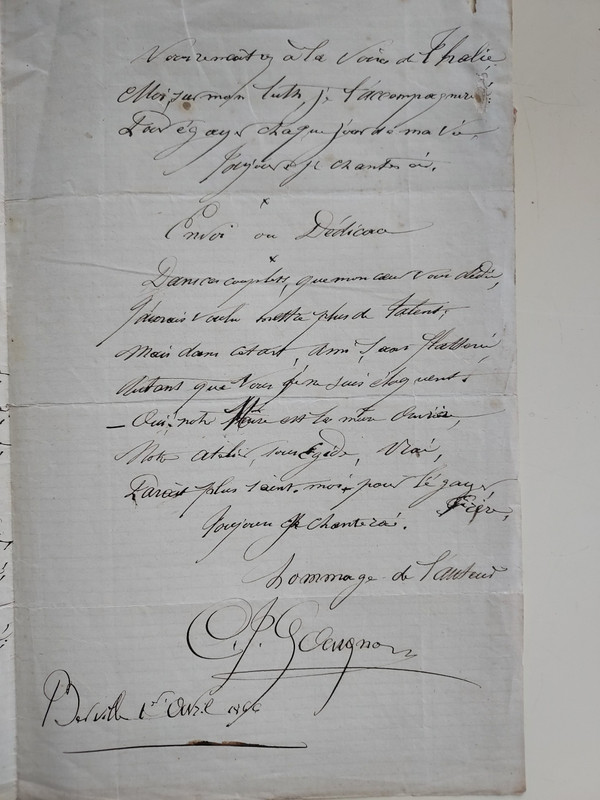 Vous renaîtrez à la Voix de Thalie
Moi sur mon luth, je l'accompagnerai
Pour égayer chaque jour de ma vie
Toujours je chanterai.
x
Envoi ou Dédicace
x
Dans ces couplets, que mon cœur vous dédie,
J'aurais voulu mettre plus de talent;
Mais dans cet art, Ami, sans flatterie,
Autant que Vous je ne suis éloquent.
- Oui, notre est la mère
Notre atelier, sous égide, Vrai,
Paraît plus saint. moi, pour l'égayer
Toujours je chanterai.
hommage de l'auteur
C. J.
1er Avril